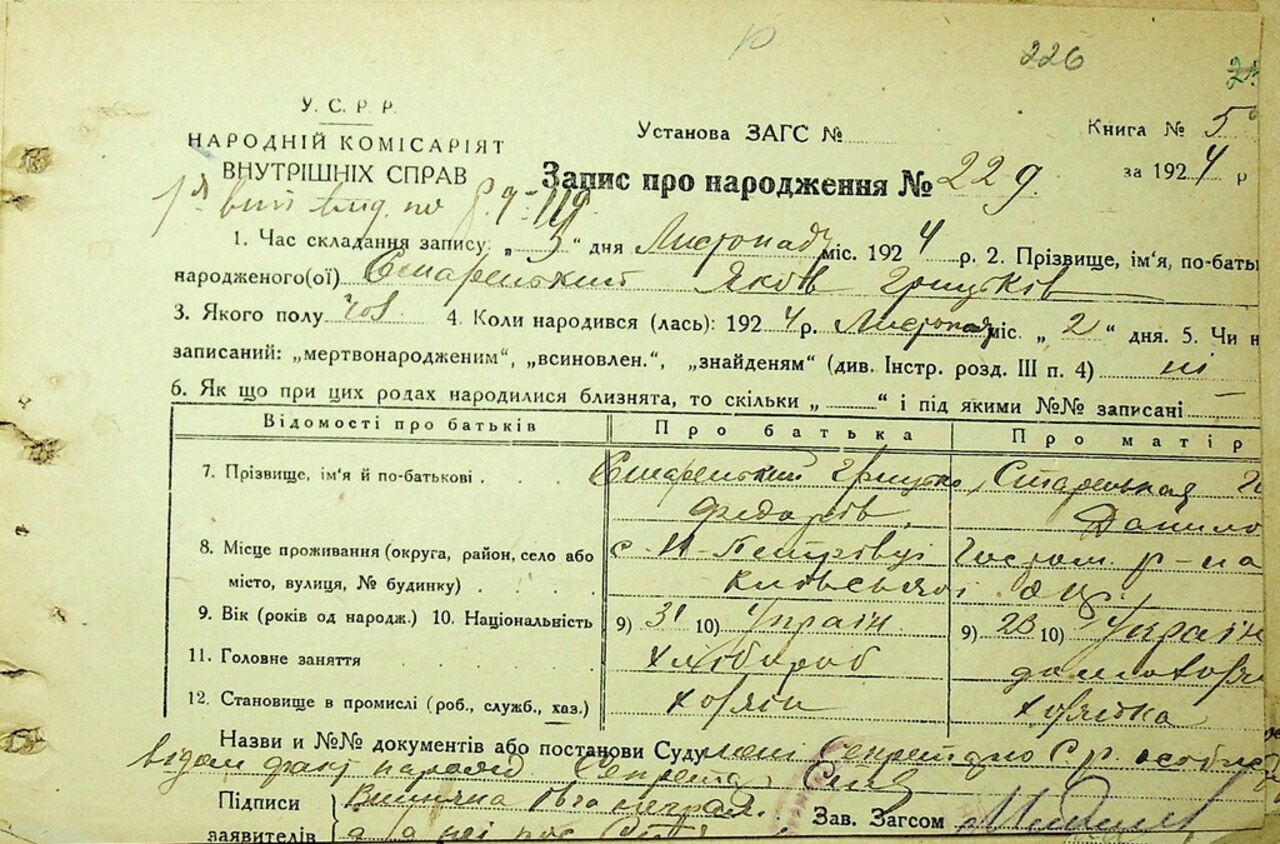 226
У. С. Р. Р.
НАРОДНІЙ КОМІСАРІЯТ
ВНУТРІШНІХ СПРАВ
Установа ЗАГС №
Книга № 5
за 1924 р
Запис про народження № 229
1. Час складання запису: „ “ дня Листопад міс. 1924 р. 2. Прізвище, ім'я, по-бать
народженого(ої) Старенький Яков Грицьків
3. Якого полу чол 4. Коли народився (лась): 1924 р. Листопад міс. „ 2 “ дня. 5. Чи н
записаний: „мертвонародженим“, „всиновлен.“, „знайденям“ (див. Інстр. розд. III п. 4) ні
6. Як що при цих родах народилися близнята, то скільки „ “ і під якими №№ записані —
Відомості про батьків Про батька Про матір
7. Прізвище, ім'я й по-батькові Старенький Грицько Старенькая
Федорів Данило
8. Місце проживання (округа, район, село або с. Н-Петрівці Гостом. р-на
місто, вулиця, № будинку) Київської
9. Вік (років од народж.) 10. Національність 9) 31 10) Україн. 9) 23 10) Україн
11. Головне заняття Хлібороб домохозя
12. Становище в промислі (роб., служб., хаз.) хозяін хозяйка
Назви и №№ документів або постанови Суду особ
відом факт народж.
Підписи
заявителів
Зав. Загсом